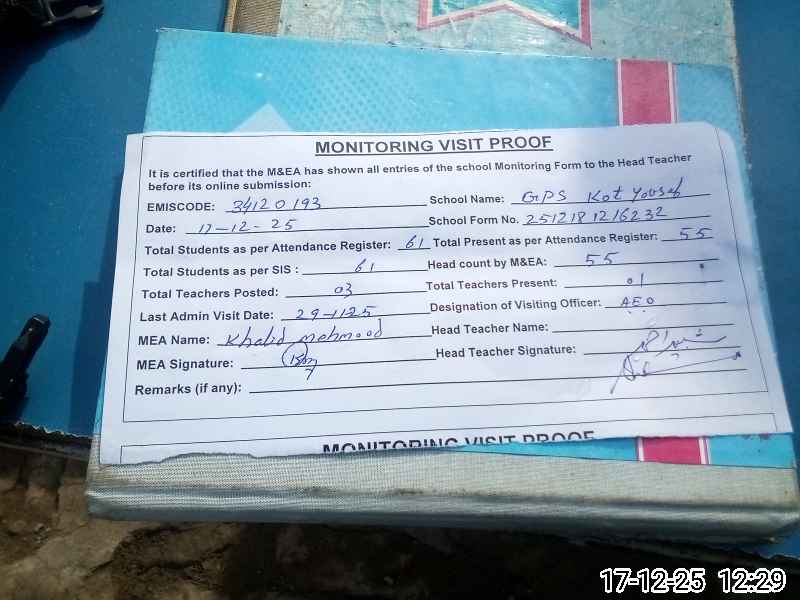 MONITORING VISIT PROOF
It is certified that the M&EA has shown all entries of the school Monitoring Form to the Head Teacher
before its online submission:
EMISCODE: 34120193 School Name: GPS Kot Yousaf
Date: 17-12-25 School Form No. 2512181216232
Total Students as per Attendance Register: 61 Total Present as per Attendance Register: 55
Total Students as per SIS : 61 Head count by M&EA: 55
Total Teachers Posted: 03 Total Teachers Present: 01
Last Admin Visit Date: 29-11-25 Designation of Visiting Officer: AEO
MEA Name: Khalid Mehmood Head Teacher Name:
MEA Signature: Head Teacher Signature:
Remarks (if any):
MONITORING VISIT PROOF
17-12-25 12:29